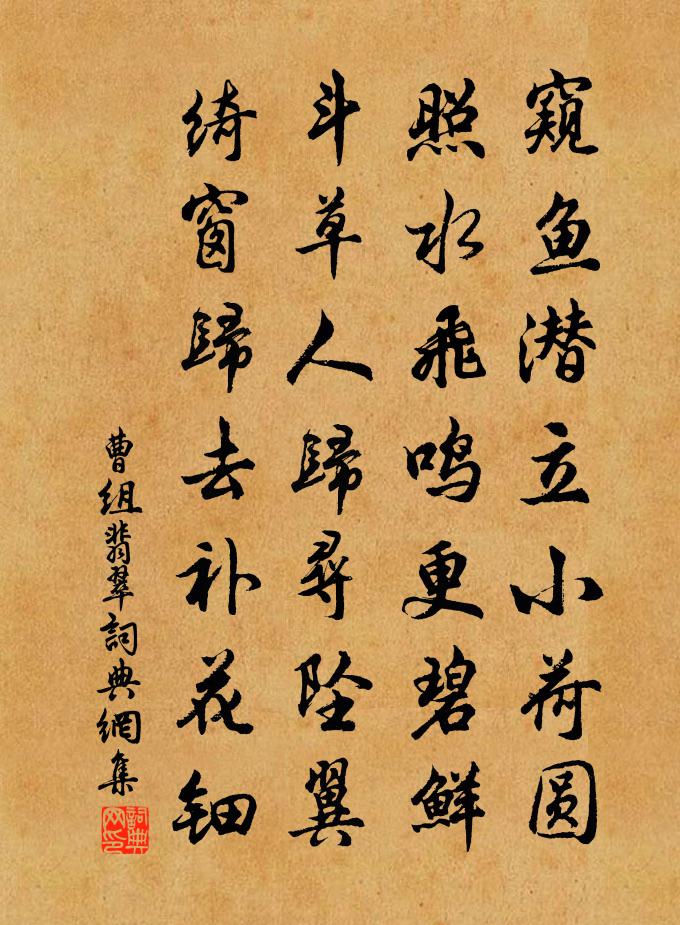 窥鱼潜立小荷圆
照水飞鸣更碧鲜
斗草人歸尋坠翼
绮窗歸去补花钿
曹组翡翠詞典網集
詞典网印